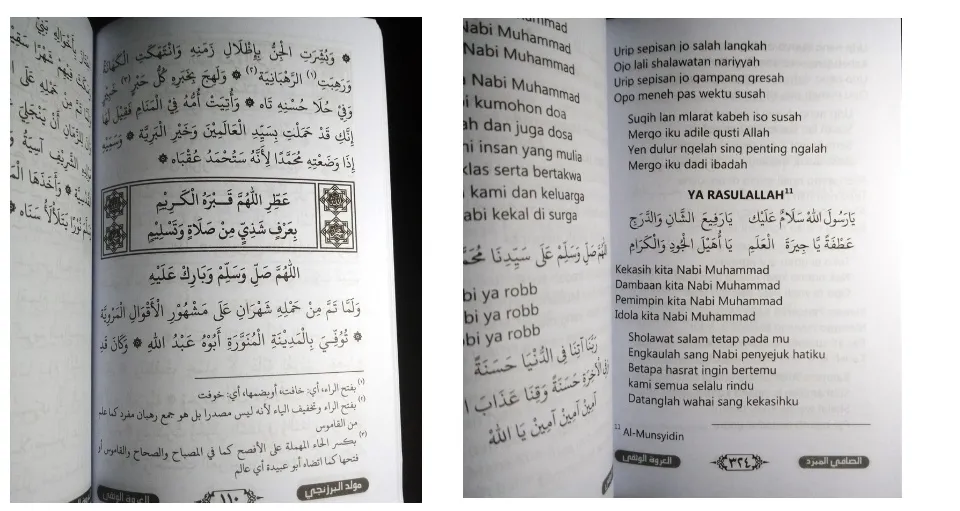 ۞ وَبُشِّرَتِ الْجِنُّ بِإِظْلَالِ زَمَنِهِ وَانْتَهَكَتِ الْكَهَانَةُ
وَرَهِبَتِ (١) الرَّهْبَانِيَّةُ (٢) ۞ وَلَهِجَ بِخَبَرِهِ كُلُّ حَبْرٍ (٣) خَبِيْرٍ
وَفِيْ حُلَا حُسْنِهِ تَاهَ ۞ وَأُتِيَتْ أُمُّهُ فِيْ الْمَنَامِ فَقِيْلَ لَهَا
إِنَّكِ قَدْ حَمَلْتِ بِسَيِّدِ الْعَالَمِيْنَ وَخَيْرِ الْبَرِيَّةِ ۞ وَسَمِّيْهِ
إِذَا وَضَعْتِهِ مُحَمَّدًا لِأَنَّهُ سَتُحْمَدُ عُقْبَاهُ ۞
عَطِّرِ اللّٰهُمَّ قَبْرَهُ الْكَرِيْمَ
بِعَرْفٍ شَذِيٍّ مِنْ صَلَاةٍ وَتَسْلِيْمٍ
اللّٰهُمَّ صَلِّ وَسَلِّمْ وَبَارِكْ عَلَيْهِ
وَلَمَّا تَمَّ مِنْ حَمْلِهِ شَهْرَانِ عَلَى مَشْهُوْرِ الْأَقْوَالِ الْمَرْوِيَّةِ
۞ تُوُفِّيَ بِالْمَدِيْنَةِ الْمُنَوَّرَةِ أَبُوْهُ عَبْدُ اللّٰهِ ۞ وَكَانَ قَدِ
(١) بفتح الراء، أي: خافت، أوبضمها، أي: خوفت
(٢) بفتح الراء وتخفيف الياء لأنه ليس مصدرا بل هو جمع رهبان مفرد كما علم
من القاموس
(٣) بكسر الحاء المهملة على الأفصح كما في المصباح والصحاح والقاموس أو
فتحها كما اتضاه أبو عبيدة أي عالم
مولد البرزنجي
١١٠
العروة الوثقى
Nabi Muhammad
Nabi Muhammad
Nabi Muhammad
kumohon doa
dan juga dosa
insan yang mulia
serta bertakwa
kami dan keluarga
kekal di surga
صَلِّ وَسَلِّمْ عَلَى سَيِّدِنَا
ya robb
ya robb
ya robb
رَبَّنَا آتِنَا فِى الدُّنْيَا حَسَنَةً
الْآخِرَةِ حَسَنَةً وَقِنَا عَذَابَ
آمِيْنْ آمِيْنْ آمِيْنْ يَا اللّٰهْ
Urip sepisan jo salah langkah
Ojo lali shalawatan nariyyah
Urip sepisan jo gampang gresah
Opo meneh pas wektu susah
Sugih lan mlarat kabeh iso susah
Mergo iku adile gusti Allah
Yen dulur ngelah sing penting ngalah
Mergo iku dadi ibadah
YA RASULALLAH¹¹
يَارَسُولَ اللّٰهْ سَلَامٌ عَلَيْك يَارَفِيعَ الشَّانِ وَالدَّرَجِ
عَطْفَةً يَّا جِيرَةَ الْعَلَمِ يَا أُهَيْلَ الْجُودِ وَالْكَرَامِ
Kekasih kita Nabi Muhammad
Dambaan kita Nabi Muhammad
Pemimpin kita Nabi Muhammad
Idola kita Nabi Muhammad
Sholawat salam tetap pada mu
Engkaulah sang Nabi penyejuk hatiku
Betapa hasrat ingin bertemu
kami semua selalu rindu
Datanglah wahai sang kekasihku
¹¹ Al-Munsyidin
الصافي المبرّد
٣٢٤
العروة الوثقى